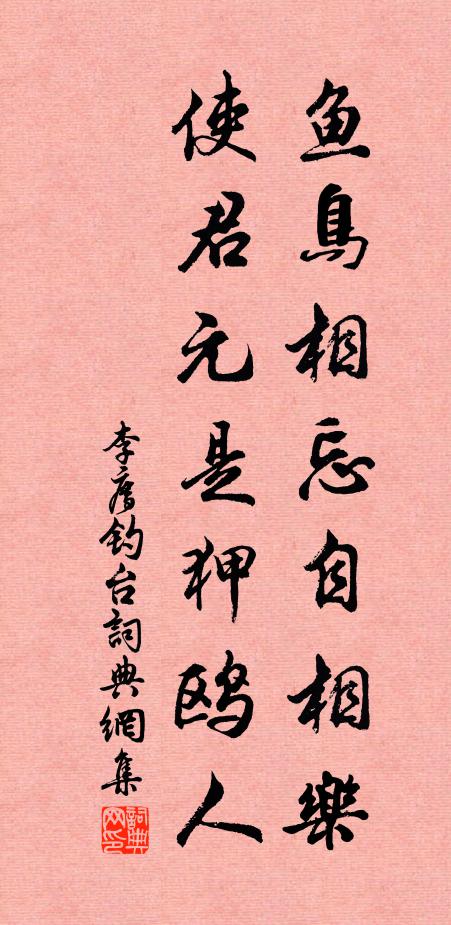 鱼鳥相忘自相樂
使君元是狎鸥人
李廌钓台詞典網集
詞典网印